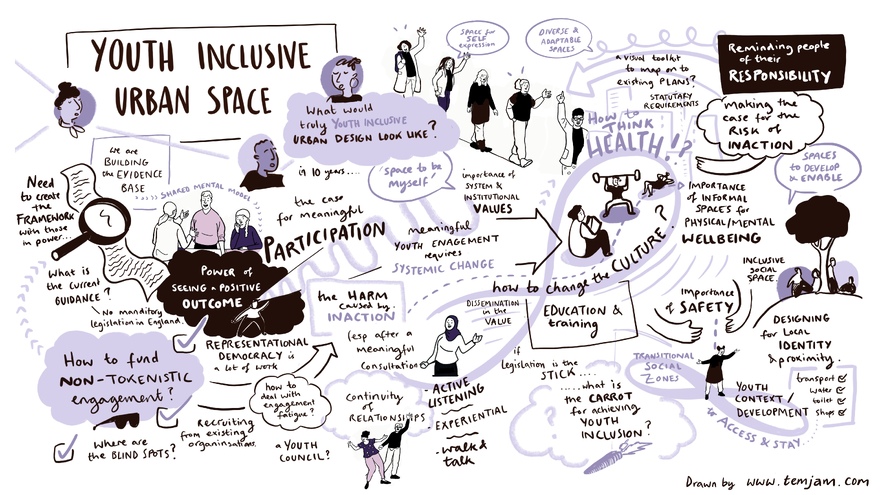 YOUTH INCLUSIVE
URBAN SPACE
What would
truly YOUTH INCLUSIVE
URBAN DESIGN LOOK LIKE?
in 10 years....
SPACE for
SELF
expression
DIVERSE &
ADAPTABLE
SPACES
a visual toolkit
to map on to
existing PLANS?
STATUTARY
REQUIREMENTS
Reminding people
of their
RESPONSIBILITY
making the
case for the
RISK of
INACTION
SPACES
to DEVELOP
& ENABLE
How to
THINK
HEALTH!!?
we are
BUILDING
the EVIDENCE
BASE
SHARED MENTAL MODEL
Need
to create
the
FRAMEWORK
with those
in power...
What is
the current
GUIDANCE?
No mandatory
legislation in England.
POWER of
SEEING a POSITIVE
OUTCOME
'space to be
myself'
the case
for meaningful
PARTICIPATION
importance of
SYSTEM &
INSTITUTIONAL
VALUES
meaningful
YOUTH ENAGEMENT
requires
SYSTEMIC CHANGE
how to change the CULTURE?
IMPORTANCE
of INFORMAL
SPACES for
PHYSICAL/MENTAL
WELLBEING
INCLUSIVE
SOCIAL
SPACE
Importance
of SAFETY
DESIGNING
for Local
IDENTITY
& proximity.
the HARM
caused by
INACTION
(esp after a
meaningful
Consultation
DISSEMINATION
in the
VALUE
EDUCATION &
training
if
legislation is the
STICK....
.....what is
the CARROT
for achieving
YOUTH
INCLUSION?
TRANSITIONAL
SOCIAL
ZONES
YOUTH
CONTEXT/
DEVELOPMENT
transport
water
toilet
shops
to ACCESS & STAY
How to fund
NON-TOKENISTIC
engagement?
REPRESENTATIONAL
DEMOCRACY is
a lot of work
how to
deal with
engagement
fatigue?
Continuity
of
RELATIONSHIPS
- ACTIVE
LISTENING
EXPERIENTIAL
- walk &
talk
where are
the BLIND SPOTS?
Recruiting
from existing
organisations.
a YOUTH
COUNCIL?
Drawn by www.temjam.com